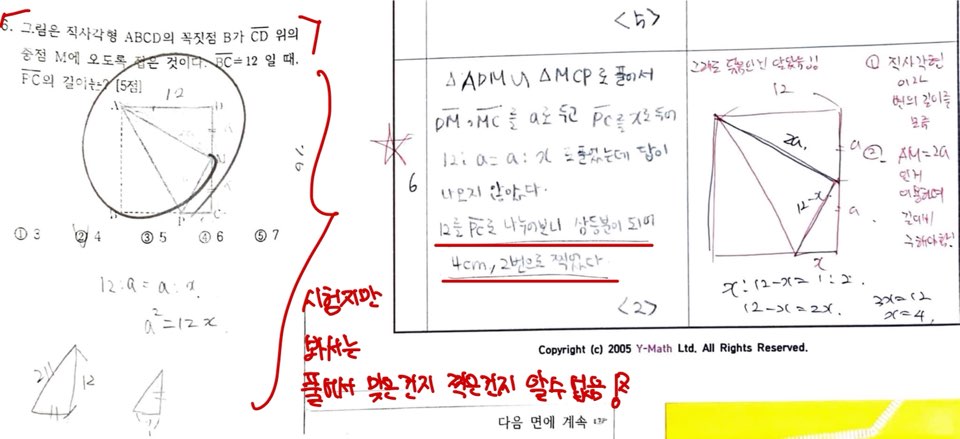 6. 그림은 직사각형 ABCD의 꼭짓점 B가 CD 위의
중점 M에 오도록 접은 것이다. BC=12 일 때,
PC의 길이는? [5점]
12
A
D
a
M
a
B
P
C
① 3 ② 4 ③ 5 ④ 6 ⑤ 7
12:a=a:x
a²=12x
2
12
시험지만
봐서는
풀어서 맞은건지 찍은건지 알수없음!
<5>
6
△ADM∽△MCP로 풀어서
DM, MC를 a로 두고 PC를 x로 두어
12:a=a:x로 풀었는데 답이
나오지 않았다.
12를 PC로 나누어보니 삼등분이 되며
4cm, 2번으로 찍었다.
<2>
12
2a
a
12-x
a
x
x:12-x=1:2
12-x=2x
3x=12
x=4
① 직사각형
이라
변의 길이를
모름
② AM=2a
인거
이용하여
길이비
구해야함!
Copyright (c) 2005 Y-Math Ltd. All Rights Reserved.
다음 면에 계속